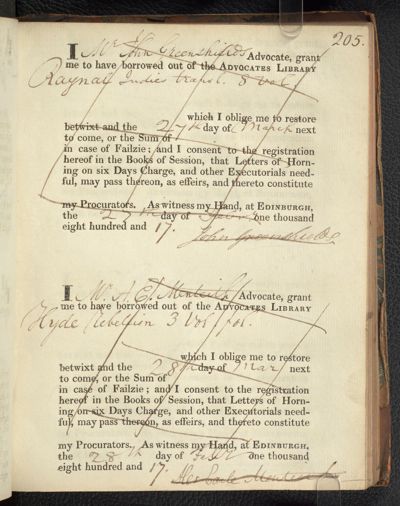 205.
I Mr John Greenshields Advocate, grant
me to have borrowed out of the ADVOCATES LIBRARY
Raynal Indies transl. 8 vol
which I oblige me to restore
betwixt and the 27th day of March next
to come, or the Sum of
in case of Failzie; and I consent to the registration
hereof in the Books of Session, that Letters of Horn-
ing on six Days Charge, and other Executorials need-
ful, may pass thereon, as effeirs, and thereto constitute
my Procurators. As witness my Hand, at EDINBURGH,
the 27th day of one thousand
eight hundred and 17. John Greenshields
I Mr A. E. Monteith Advocate, grant
me to have borrowed out of the ADVOCATES LIBRARY
Hyde Rebellion 3 vol
which I oblige me to restore
betwixt and the 28th day of Mar next
to come, or the Sum of
in case of Failzie; and I consent to the registration
hereof in the Books of Session, that Letters of Horn-
ing on six Days Charge, and other Executorials need-
ful, may pass thereon, as effeirs, and thereto constitute
my Procurators. As witness my Hand, at EDINBURGH,
the 28th day of one thousand
eight hundred and 17. Alex Earle Monteith